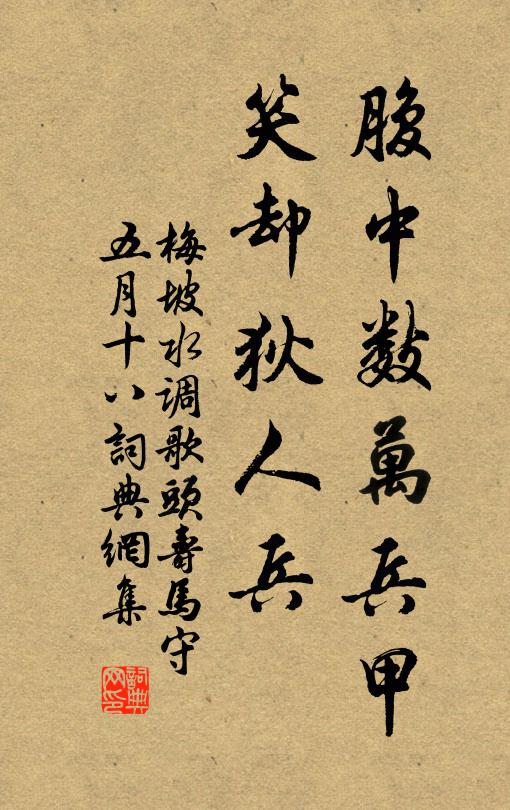 腹中數萬兵甲
笑却狄人兵
梅坡水調歌頭壽馬守
五月十八詞典網集
詞典网印